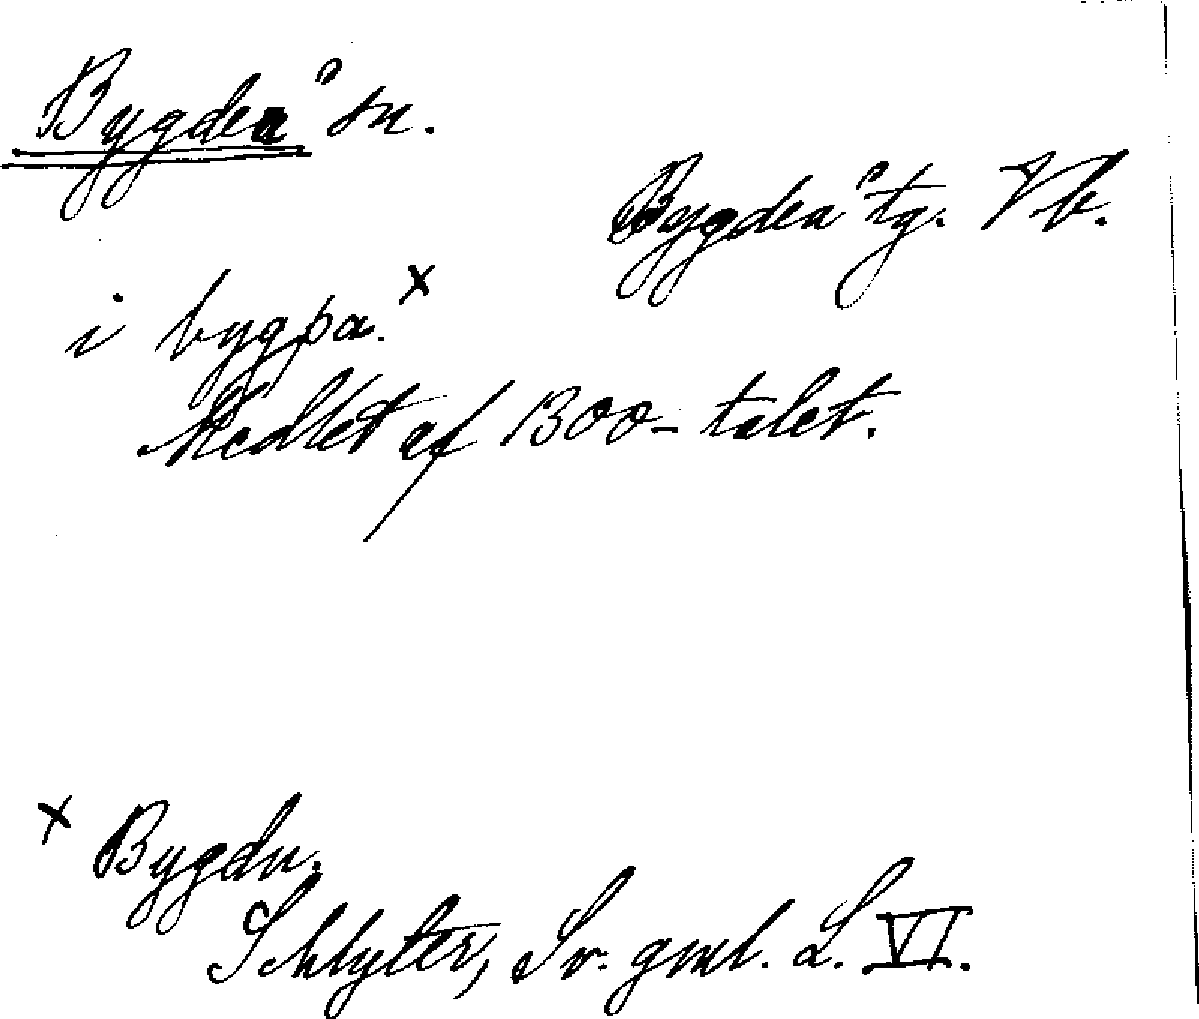 Bygdeå sn.
Bygdeå tg. Vb.
i bygþa. x
Medlet af 1300-talet.
x Bygdu.
Schlyter, Sv. gml. L. VI.